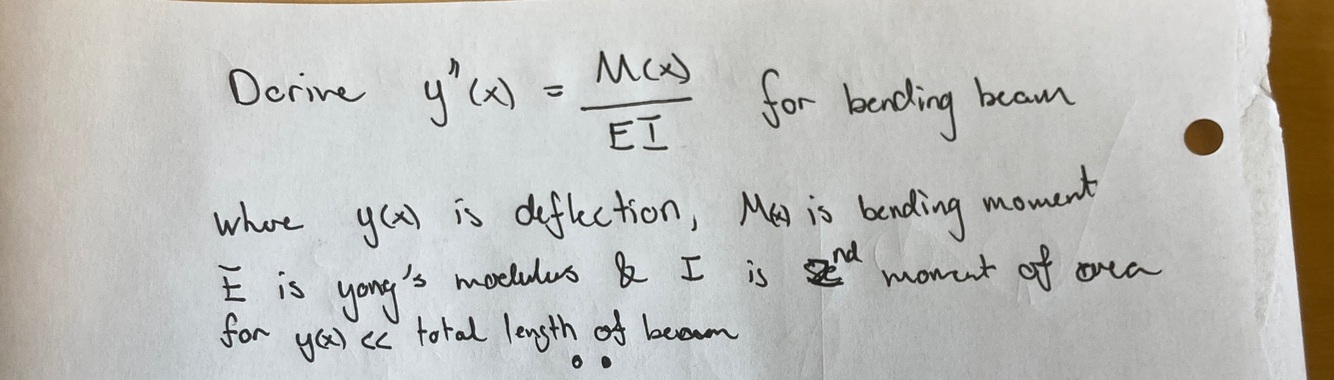 Derive y"(x) = M(x) / EI for bending beam
where y(x) is deflection, M(x) is bending moment
E is yong's modulus & I is 2nd moment of area
for y(x) << total length of beam